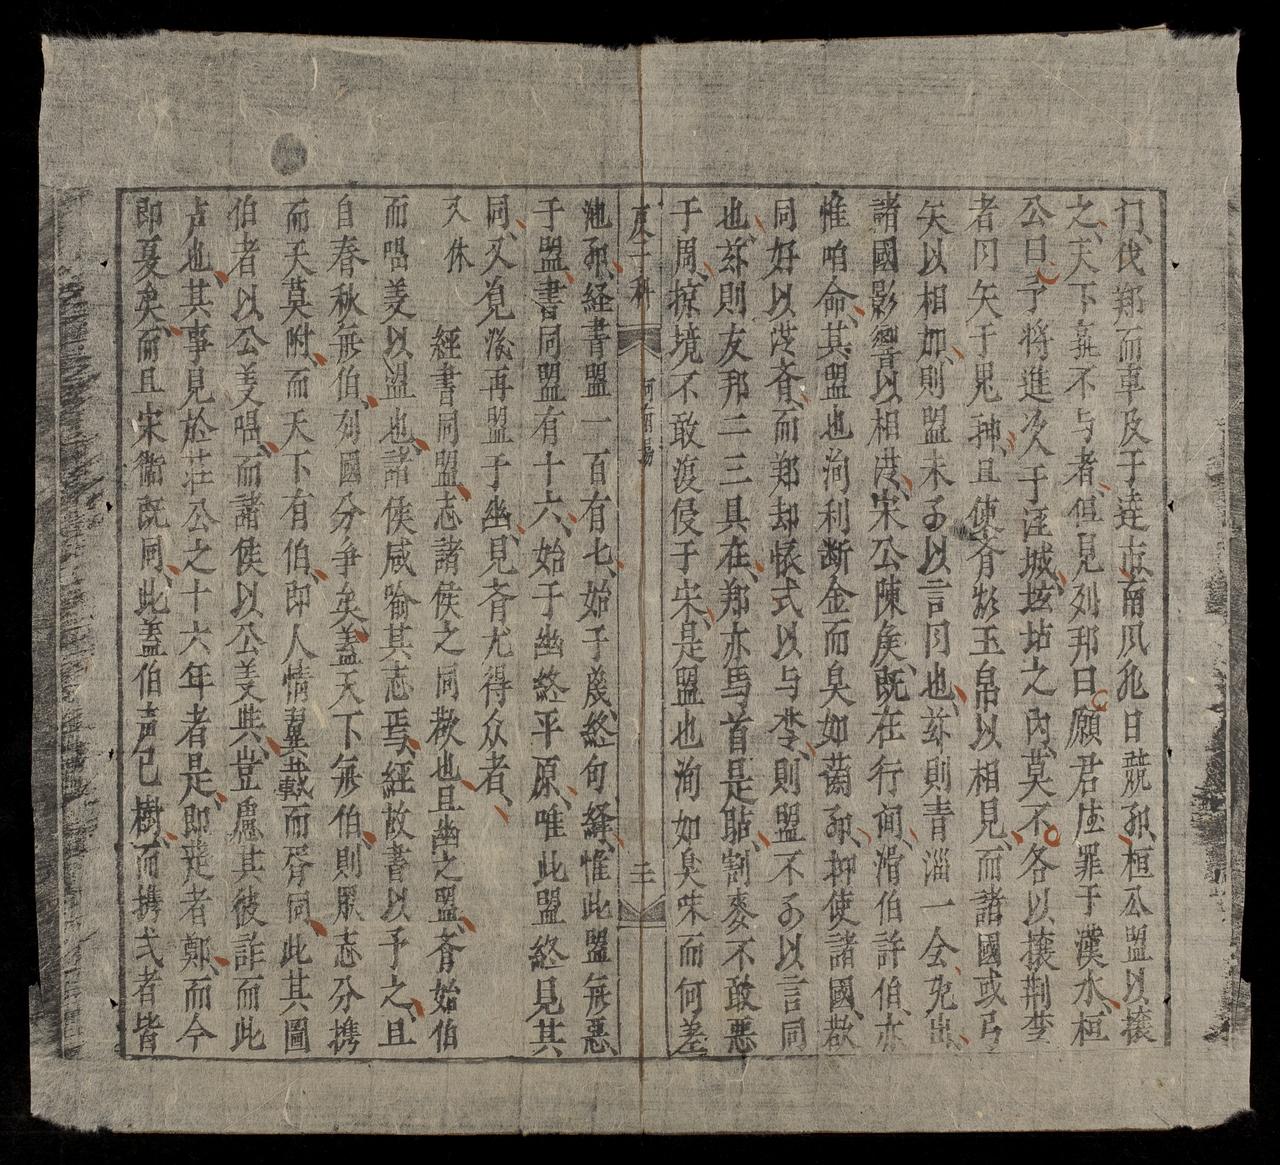 門伐鄭而車及于逵市南風兆日競殆桓公盟以攘
之天下無不与者但見列邦曰願君庄罪于漢水桓
公曰予将進次于汪城垓坫之内莫不各以攘荆楚
者同矢于鬼神且使斉彩玉帛以相見而諸國或弓
矢以相加則盟未可以言同也茲則青淄一会免出
諸國影響以相從宋公陳侯既在行间滑伯許伯亦
惟咱命其盟也洵利断金而臭如蘭抑使諸國歃
同好以從斉而鄭却懐式以与李則盟不可以言同
也茲則友邦二三具在鄭亦馬首是贴割麥不敢悪
于周掠境不敢復侵于宋是盟也洵如臭味而何差
庚子科 河南場 二
池経書盟一百有七始于蔑終句繹惟此盟無悪
于盟書同盟有十六始于幽終平原唯此盟終見其
同又見後再盟于幽見斉尤得众者
又休 経書同盟志諸侯之同歃也且幽之盟斉始伯
而唱姜以盟也諸侯咸喻其志焉経故書以予之且
自春秋無伯列國分争矣盖天下無伯則眾志分携
而天莫附而天下有伯即人情翼戴而胥同此其圖
伯者以公姜唱而諸侯以公姜共豈慮其彼詐而此
卢也其事見於荘公之十六年者是即疑者鄭而今
即夏矣而且宋衛既同此盖伯声已樹而携式者皆